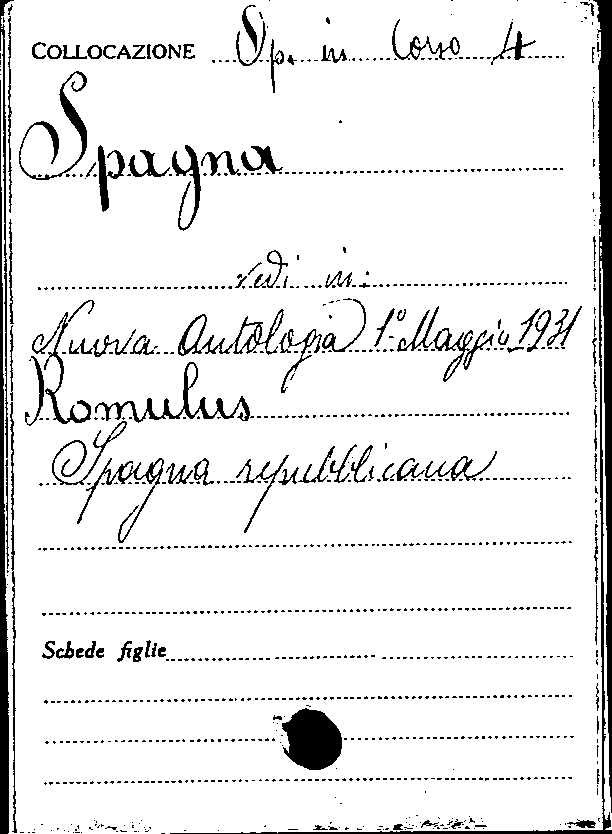 COLLOCAZIONE Sp. in Corso 4
Spagna
vedi in:
Nuova Antologia 1° Maggio 1931
Romulus
Spagna repubblicana
Schede figlie